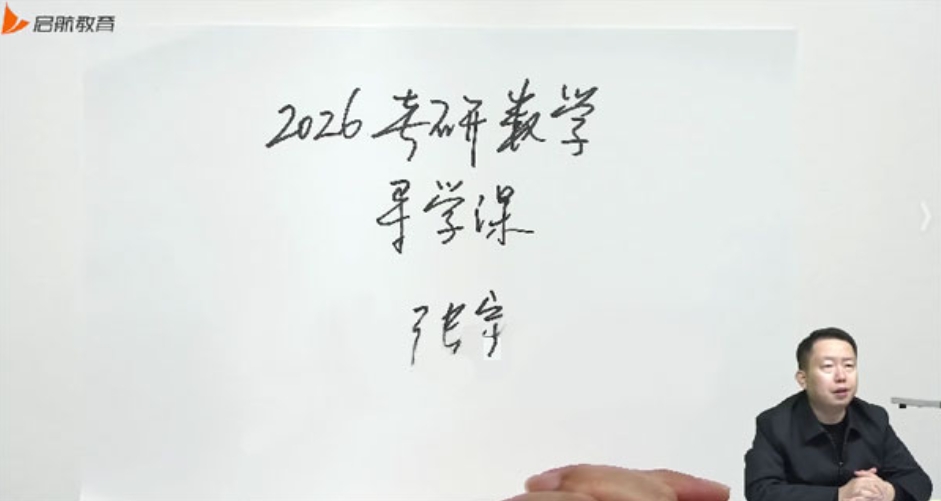 启航教育
2026考研数学
导学课
张宇